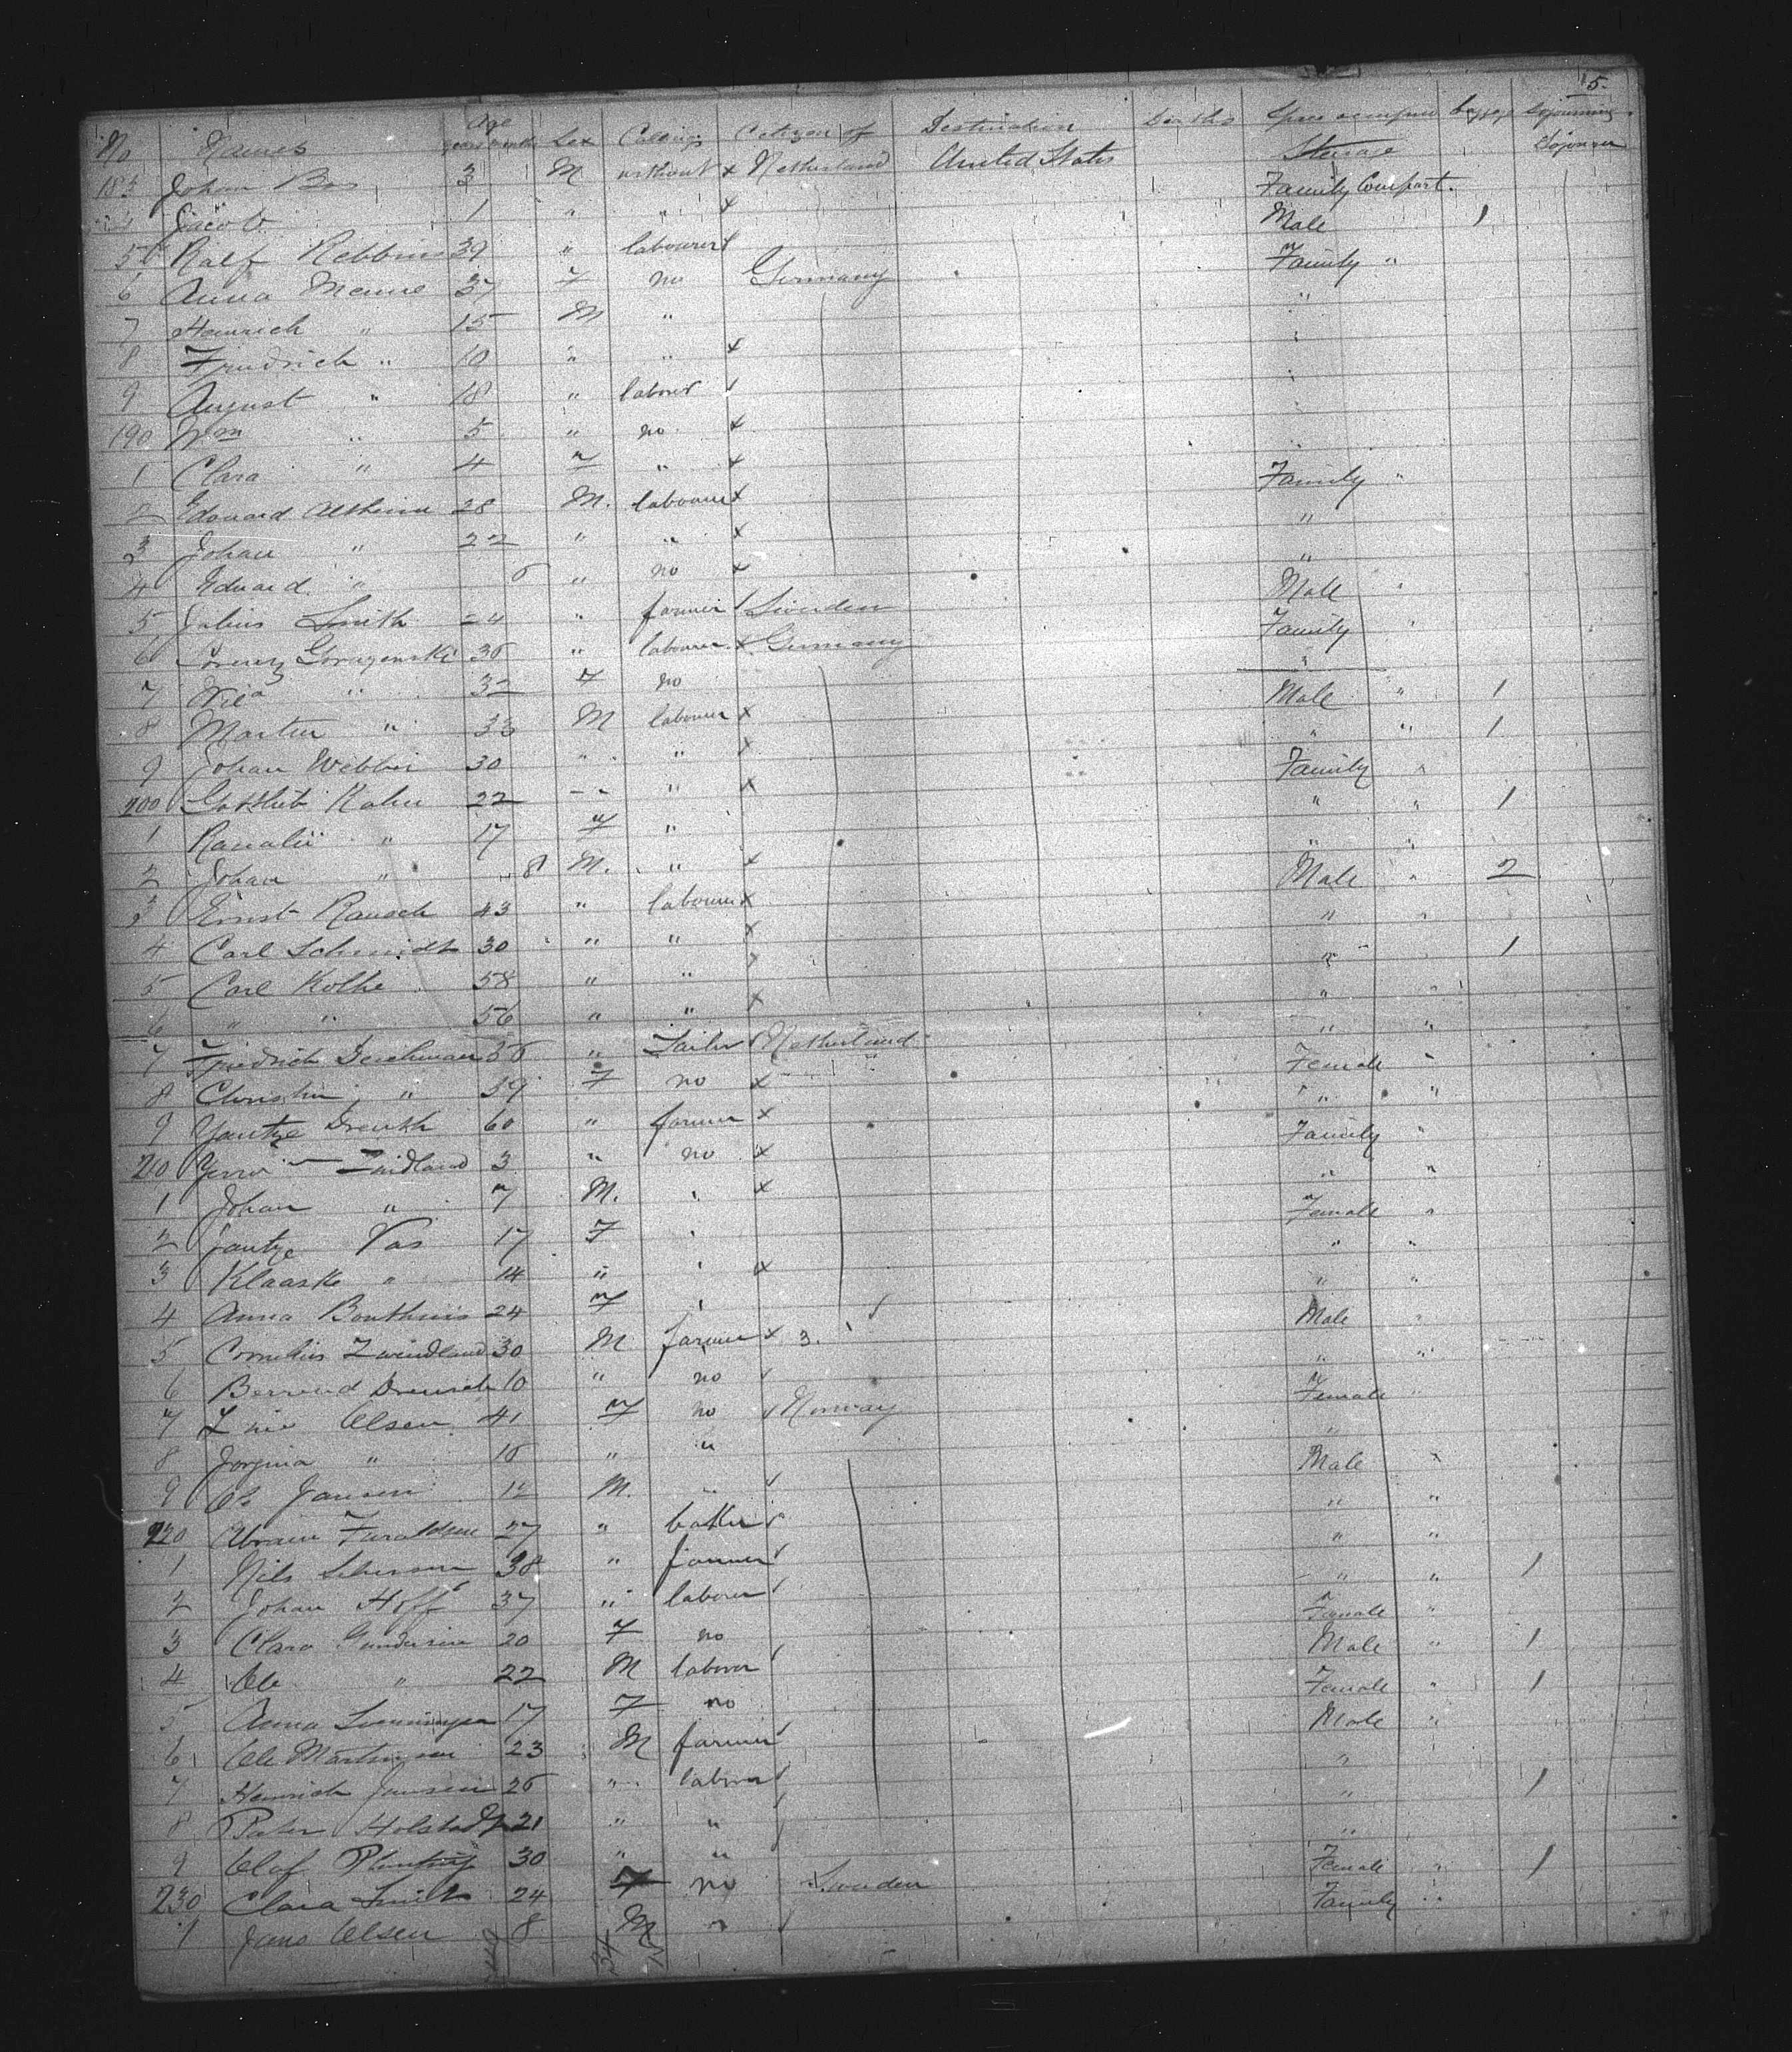 15.
No Names Age years months Sex Calling Citizen of Destination Deaths Space occupied baggage Sojourning
183 Johan Bos 3 M without x Netherland United States Steerage Sojourner
4 Jacob 1 " " x Family Compart.
5 Ralf Rebbins 39 " labourer Male 1
6 Anna Menne 37 F no Germany Family "
7 Heinrich " 15 M " "
8 Friedrich " 10 " " x
9 August " 18 " laborer
190 Wm " 5 " no x
1 Clara " 4 F " x "
2 Edouard 28 M. labourer x Family "
3 Johan " 22 " " x "
4 Eduard " 6 " no x "
5 Julius Smith 24 " farmer Sweden Male "
6 Lorenz 36 " labourer x Germany Family "
7 " 32 F no "
8 Martin " 33 M labourer x Male " 1
9 Johan Webber 30 " " x " " 1
200 Gottlieb Rahn 22 " " x Family "
1 " 17 F " " " 1
2 Johan " 8 M. " x " "
3 Ernst Rausch 43 " labourer x Male " 2
4 Carl Schmidt 30 " " x " "
5 Carl Kolbe 58 " " " 1
6 " " 56 " " x " "
7 Friedrich 56 " Sailor Netherland " "
8 Christin " 59 F no x Female "
9 Jantze Drenth 60 " farmer x " "
210 Zuidland 3 " no x Family "
1 Johan " 7 M. " x " "
2 Jantze Vas 17 F " Female "
3 Klaaske " 14 " " x " "
4 Anna Bonthuis 24 F " " "
5 Cornelius Zwindland 30 M farmer x 3. Male "
6 Berrend 10 " no " "
7 Olsen 41 F no Norway Female "
8 Jorgina " 16 " " "
9 Ole Jansen 12 M. " Male "
220 27 " baker " "
1 Nils 38 " farmer " "
2 Johan Hoff 37 " laborer " " 1
3 Clara Gundersine 20 F no Female "
4 Ole " 22 M laborer Male " 1
5 Anna 17 F no Female " 1
6 Ole Martinsen 23 M farmer Male "
7 Heinrich Jansen 26 " laborer "
8 Peter 21 " " " 1
9 Olaf 30 " " "
230 Clara Smith 24 F no Sweden Female " 1
1 Jans Olsen 8 M " Family "